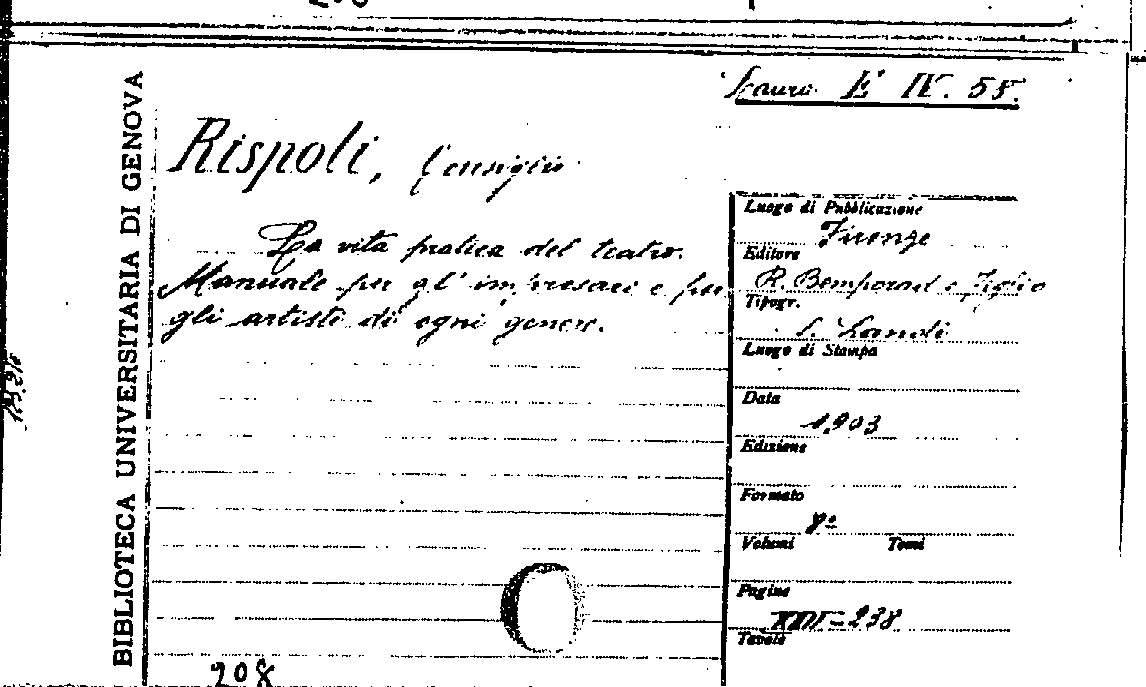 Scuro E IV. 55.
BIBLIOTECA UNIVERSITARIA DI GENOVA
Rispoli, Consiglio
La vita pratica del teatro.
Manuale per gl'impresari e per
gli artisti di ogni genere.
Luogo di Pubblicazione
Firenze
Editore
R. Bemporad e Figlio
Tipogr.
L. Landi
Luogo di Stampa
Data
1903
Edizione
Formato
8º
Volumi Tomi
Pagine
XIII-238
Tavole
208